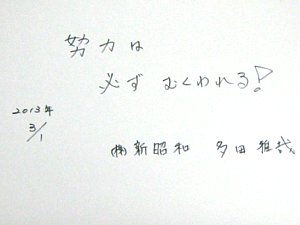 努力は
必ず むくわれる!
2013年
3/1
㈱新昭和 多田雅哉